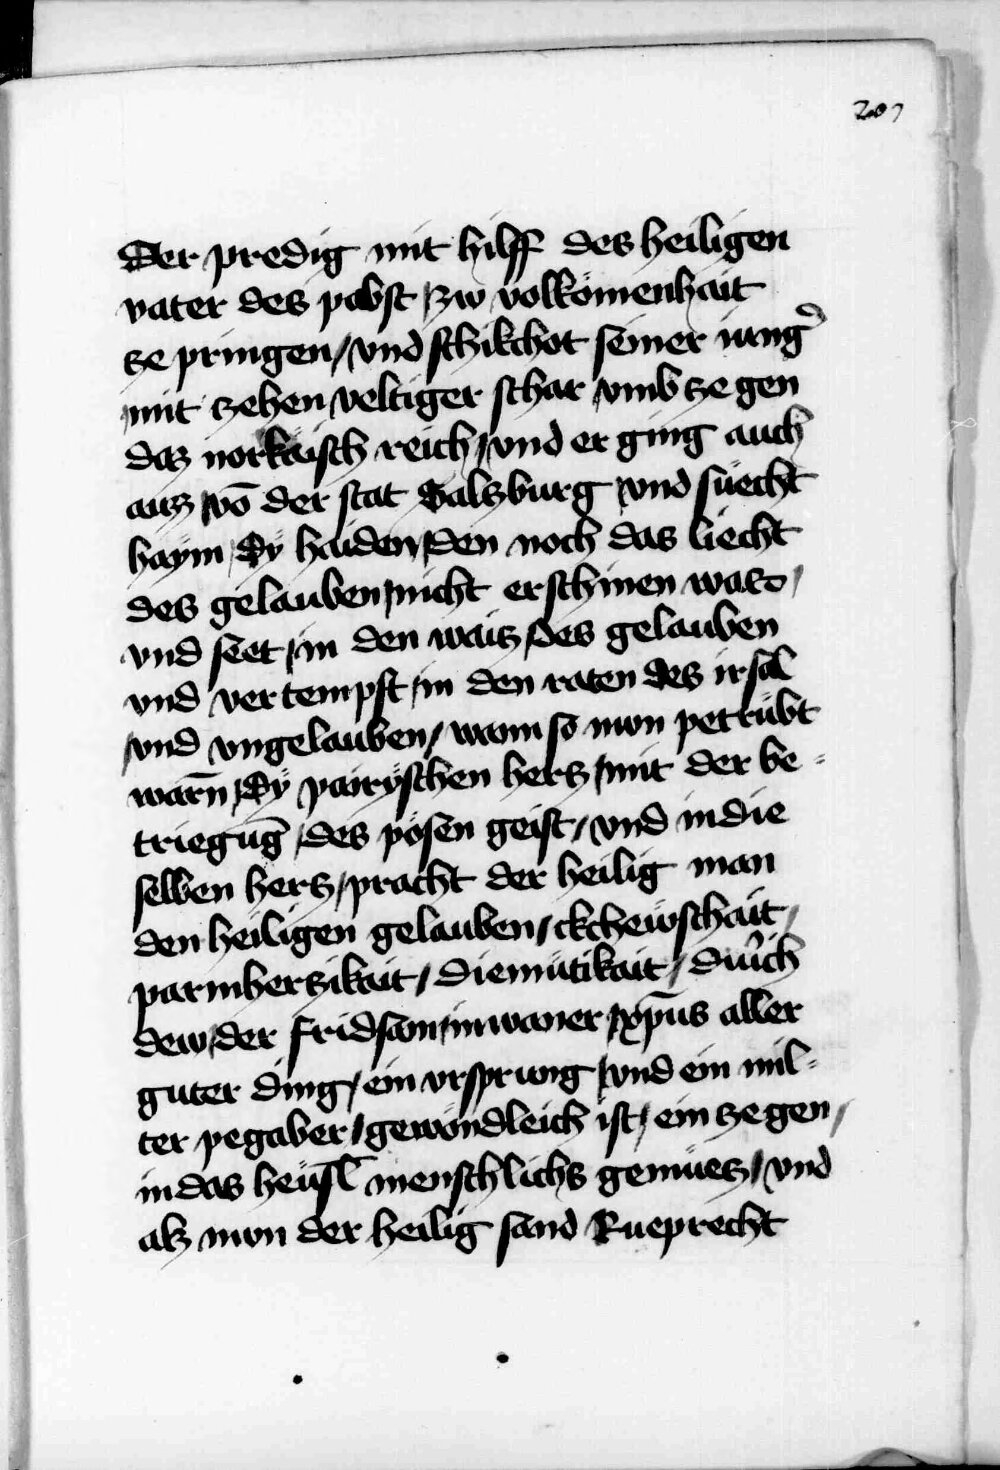 207
Der predig mit hilff des heiligen
vater des pabst / zw volkömenhait
ze pringen / vnd schikchot seiner iung̾
mit zehen veltiger schar / vmb ze gen
daz norkäisch reich / vnd er ging auch
auz / vō der stat Salzburg / vnd süecht
haÿm / Dÿ haiden / den noch das liecht
des gelauben / nicht erschinen was /
vnd seet / in den waitz / des gelauben
vnd vertempft / in den raten des irsal
/ vnd vngelauben / wann so nwn petrübt
warn̄ / Dÿ pairÿschen hertz / mit der be=
triegūg / des pösen geist / vnd in die
selben hertz / pracht der heilig man
den heiligen gelauben / ckchewschait /
parmhertzikait / diemütikait / durich
dew / der fridsam / inwaner / xp̄us aller
guter ding / ein vrsprung / vnd ein mil=
ter pegaber / gewöndleich ist / ein ze gen /
in das heüsl menschlichs gemüetz / vnd
alz nwn der heilig sand Rueprecht